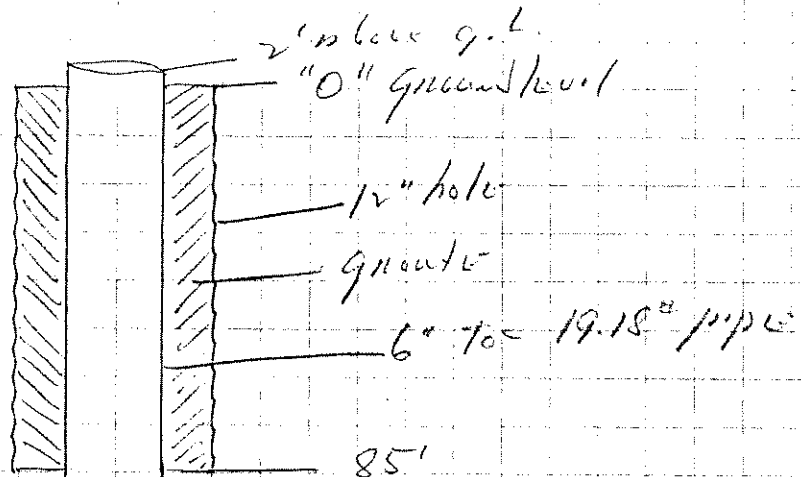 2' above g.l.
"O" Ground level
12" hole
groute
6" T.O.E 19.18# pipe
85'